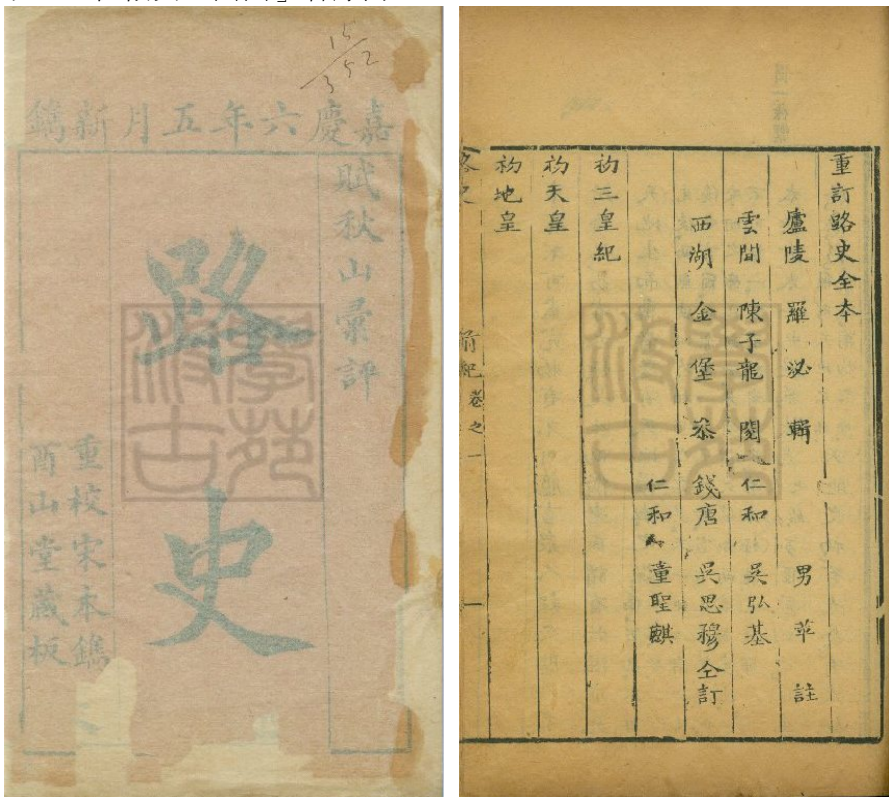 15
352
嘉慶六年五月新鐫
賦秋山彙評
路史
重校宋本鐫
酉山堂藏板
重訂路史全本
廬陵羅泌輯男苹註
雲間陳子龍閱仁和吳弘基
西湖金堡叅錢唐吳思穆仝訂
仁和童聖麒
初三皇紀
初天皇
初地皇
路史
前紀卷之一
一
學苑汲古
學苑汲古